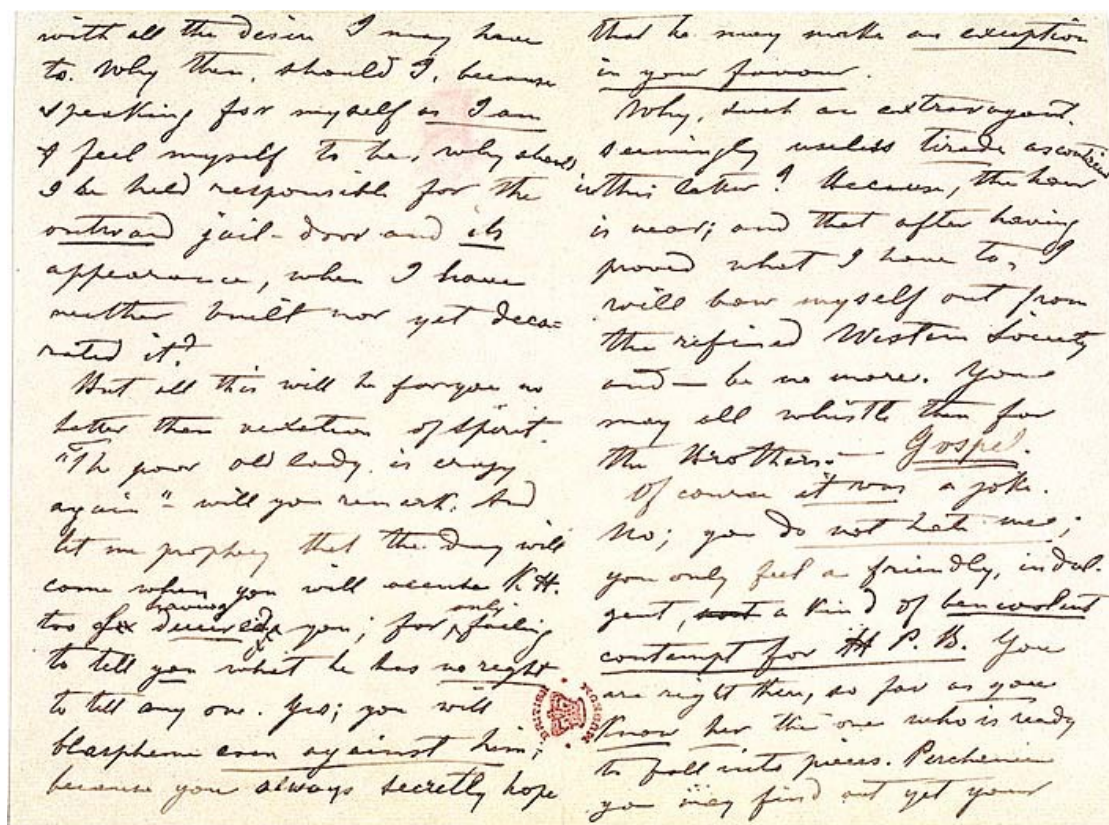 with all the desire I may have
to. Why then, should I, because
speaking for myself as I am
& feel myself to be, why should
I be held responsible for the
outward jail-door and its
appearance, when I have
neither built nor yet deco=
rated it?
But all this will be for you no
better than vexation of spirit.
"The poor old lady is crazy
again" – will you remark. And
let me prophecy that the day will
come when you will accuse K.H.
too of having deceived you; for only failing
to tell you what he has no right
to tell any one. Yes; you will
blaspheme even against him;
because you always secretly hope
that he may make an exception
in your favour.
Why, such an extravagant,
seemingly useless tirade as contained
in this letter? Because, the hour
is near; and that after having
proved what I have to, I
will bow myself out from
the refined Western Society
and — be no more. You
may all whistle then for
the Brothers — Gospel.
Of course it was a joke.
No; you do not hate me;
you only feel a friendly, indul-
gent, a kind of benevolent
contempt for H.P.B. You
are right there, so far as you
Know her the one who is ready
to fall into pieces. Perchance
you may find out yet your
BRITISH MUSEUM